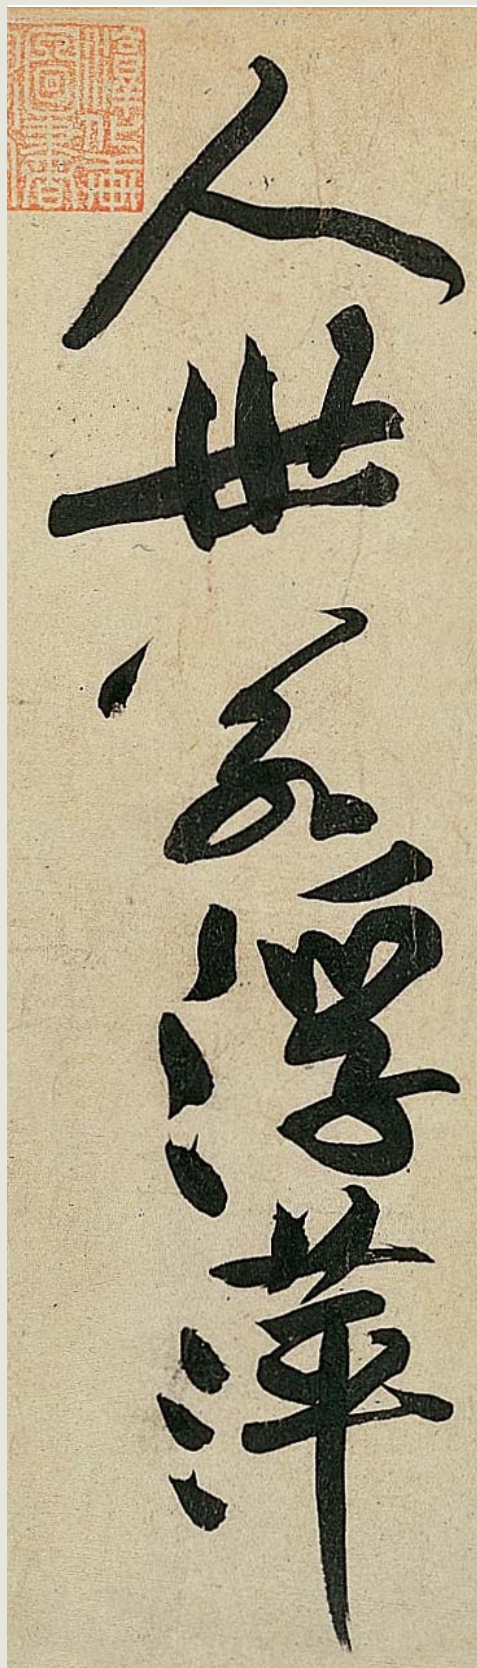 人世若浮萍